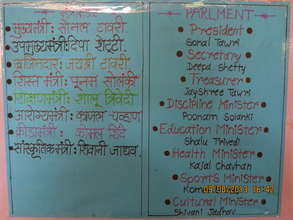 मुख्यमंत्री: सोनल टावरी
उपमुख्यमंत्री: दिपा शेट्टी
जयश्री टावरी
शिस्त मंत्री: पूनम सोलंकी
शिक्षणमंत्री: शालू त्रिवेदी
आरोग्यमंत्री: चव्हाण
क्रीडामंत्री: कोमल
सांस्कृतिकमंत्री: शिवानी जाधव
PARLMENT
President
Sonal Tawri
Secretary
Deepa Shetty
Treasurer
Jayshree Tawri
Discipline Minister
Poonam Solanki
Education Minister
Shalu Trivedi
Health Minister
Kajal Chavhan
Sports Minister
Kom
Cultural Minister
Shivani Jadhav